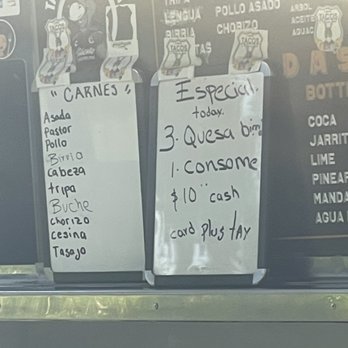 TRIPA
LENGUA
BIRRIA
POLLO ASADO
CHORIZO
ARBOL
ACEITE
AGUAC
TACOS
TACOS
DAS
BOTT
COCA
JARRIT
LIME
PINEAP
MANDA
AGUA
"CARNES"
Asada
Pastor
Pollo
Birria
Cabeza
tripa
Buche
chorizo
Cesina
Tasajo
Especial
today.
3. Quesa birri
1. Consome
$10 cash
card plus tAy